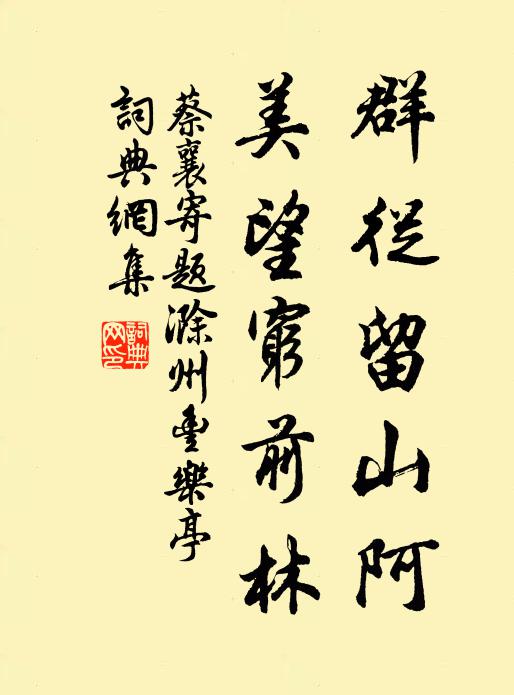 群從留山阿
美望窮前林
蔡襄寄題滁州豊樂亭
詞典網集
詞典
网印